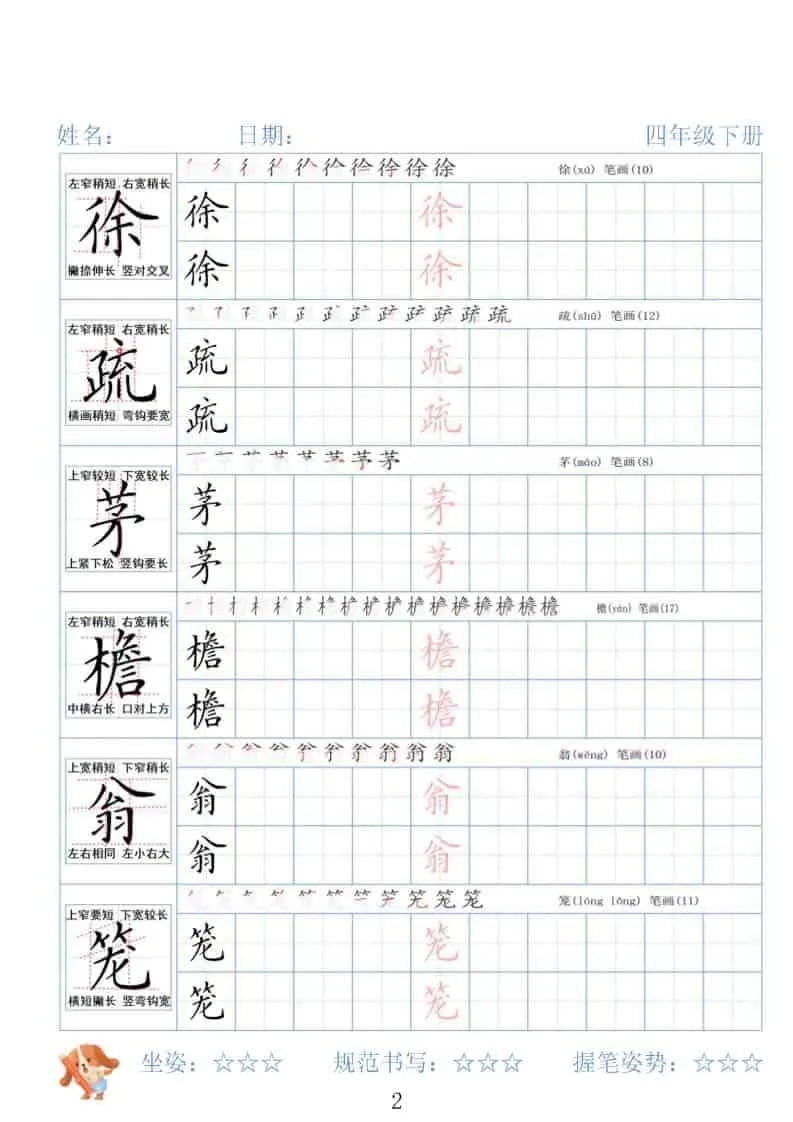 姓名： 日期： 四年级下册
徐(xú) 笔画(10)
左窄稍短 右宽稍长
徐
撇捺伸长 竖对交叉
徐 徐
徐 徐
疏(shū) 笔画(12)
左窄稍短 右宽稍长
疏
横画稍短 弯钩要宽
疏 疏
疏 疏
茅(máo) 笔画(8)
上窄较短 下宽较长
茅
上紧下松 竖钩要长
茅 茅
茅 茅
檐(yán) 笔画(17)
左窄稍短 右宽稍长
檐
中横右长 口对上方
檐 檐
檐 檐
翁(wēng) 笔画(10)
上宽稍短 下窄稍长
翁
左右相同 左小右大
翁 翁
翁 翁
笼(lóng lǒng) 笔画(11)
上窄要短 下宽较长
笼
横短撇长 竖弯钩宽
笼 笼
笼 笼
坐姿：☆☆☆ 规范书写：☆☆☆ 握笔姿势：☆☆☆
2